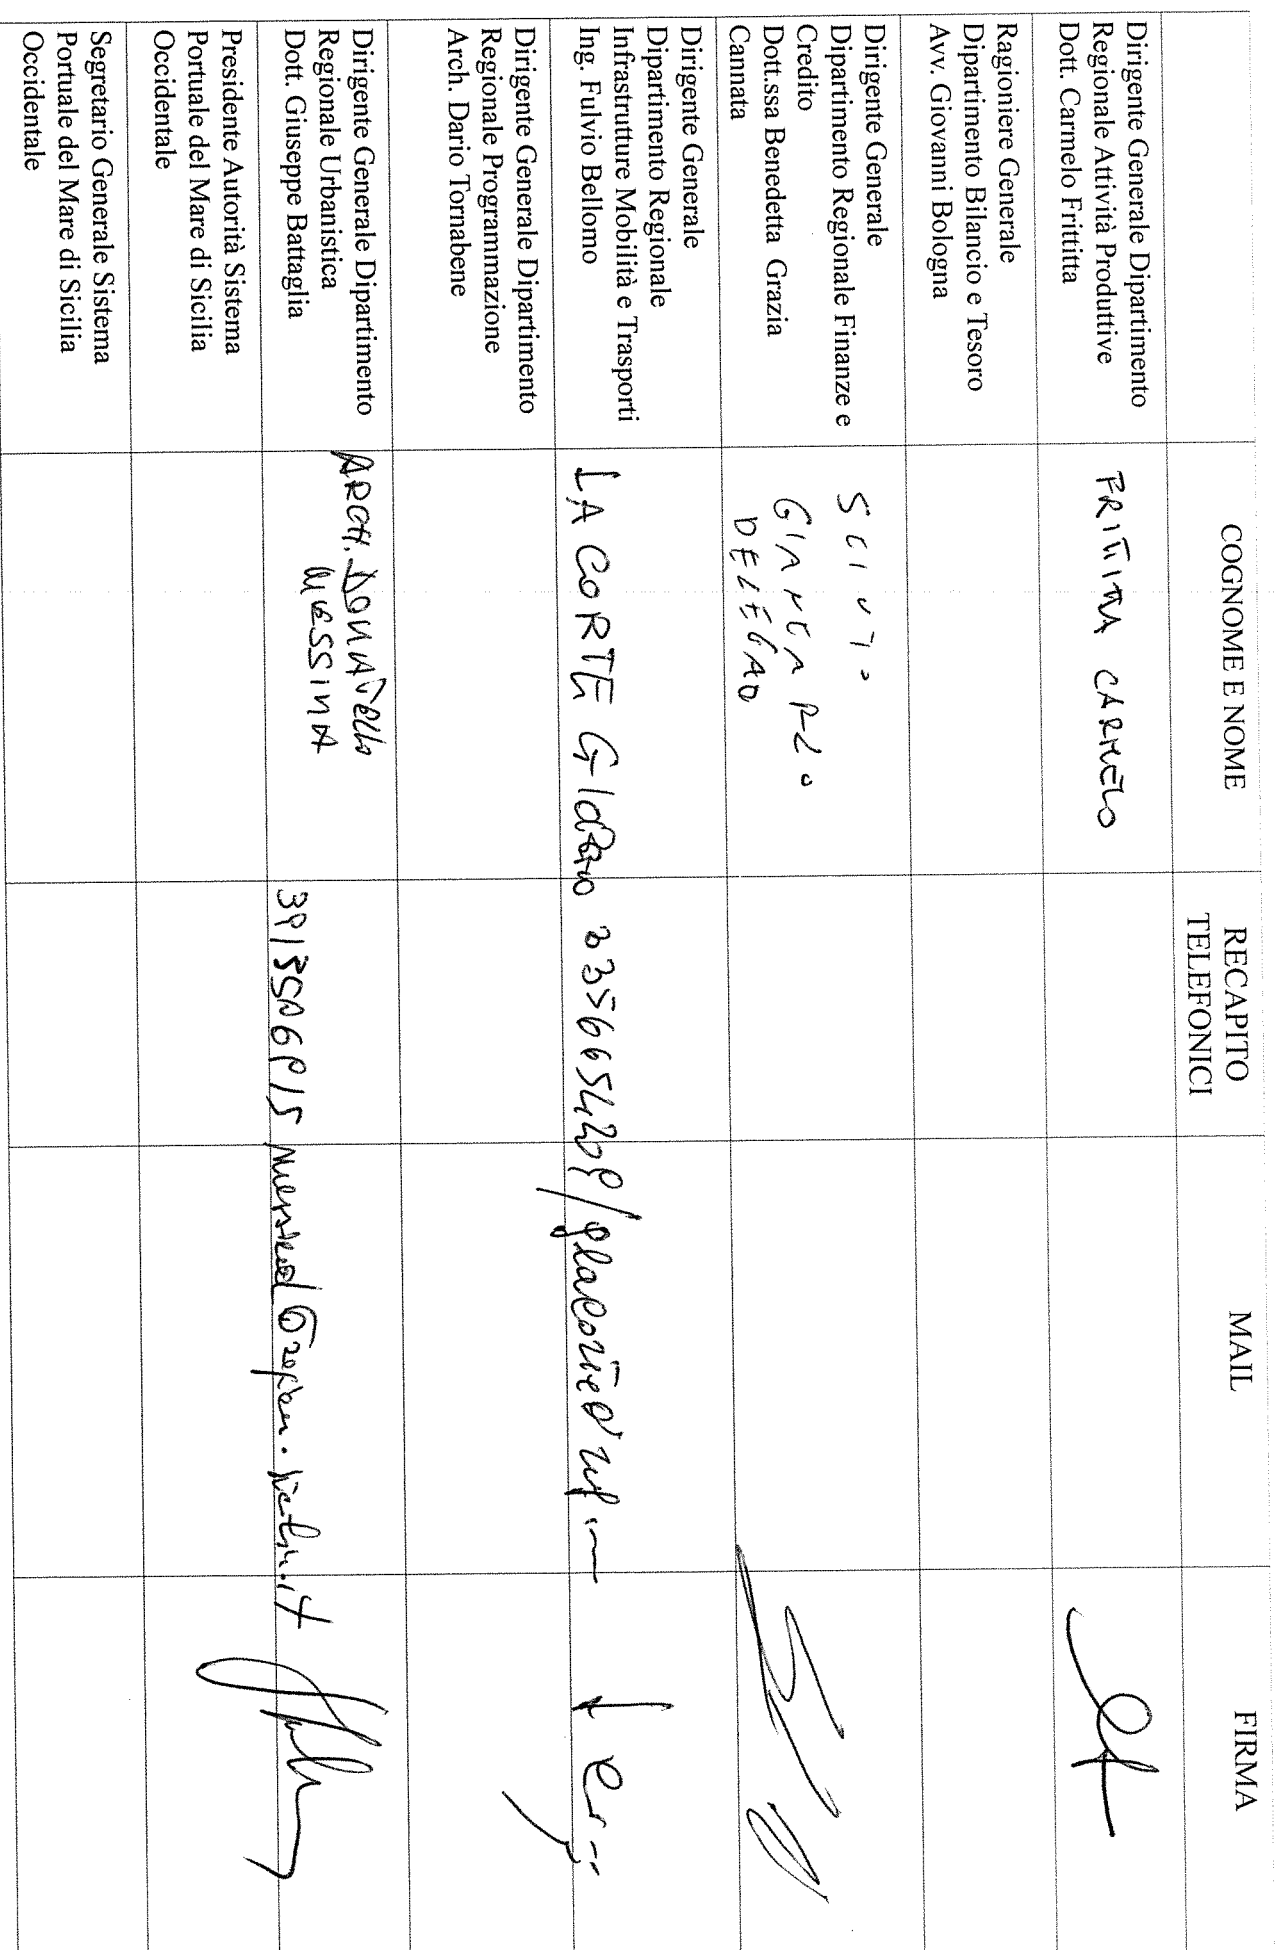 COGNOME E NOME
RECAPITO
TELEFONICI
MAIL
FIRMA
Dirigente Generale Dipartimento
Regionale Attività Produttive
Dott. Carmelo Frittitta
FRITTITTA CARMELO
Ragioniere Generale
Dipartimento Bilancio e Tesoro
Avv. Giovanni Bologna
Dirigente Generale
Dipartimento Regionale Finanze e
Credito
Dott.ssa Benedetta Grazia
Cannata
SCIUTO
GIANCARLO
DELEGATO
Dirigente Generale
Dipartimento Regionale
Infrastrutture Mobilità e Trasporti
Ing. Fulvio Bellomo
LA CORTE
Dirigente Generale Dipartimento
Regionale Programmazione
Arch. Dario Tornabene
Dirigente Generale Dipartimento
Regionale Urbanistica
Dott. Giuseppe Battaglia
ARCH. DONATELLO
MESSINA
Presidente Autorità Sistema
Portuale del Mare di Sicilia
Occidentale
Segretario Generale Sistema
Portuale del Mare di Sicilia
Occidentale